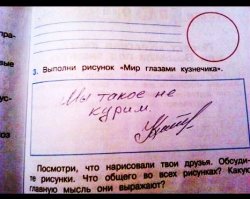 пра-
вые
3. Выполни рисунок «Мир глазами кузнечика».
Мы такое не
курим.
ус-
роз
Посмотри, что нарисовали твои друзья. Обсуди-
те рисунки. Что общего во всех рисунках? Какую
главную мысль они выражают?